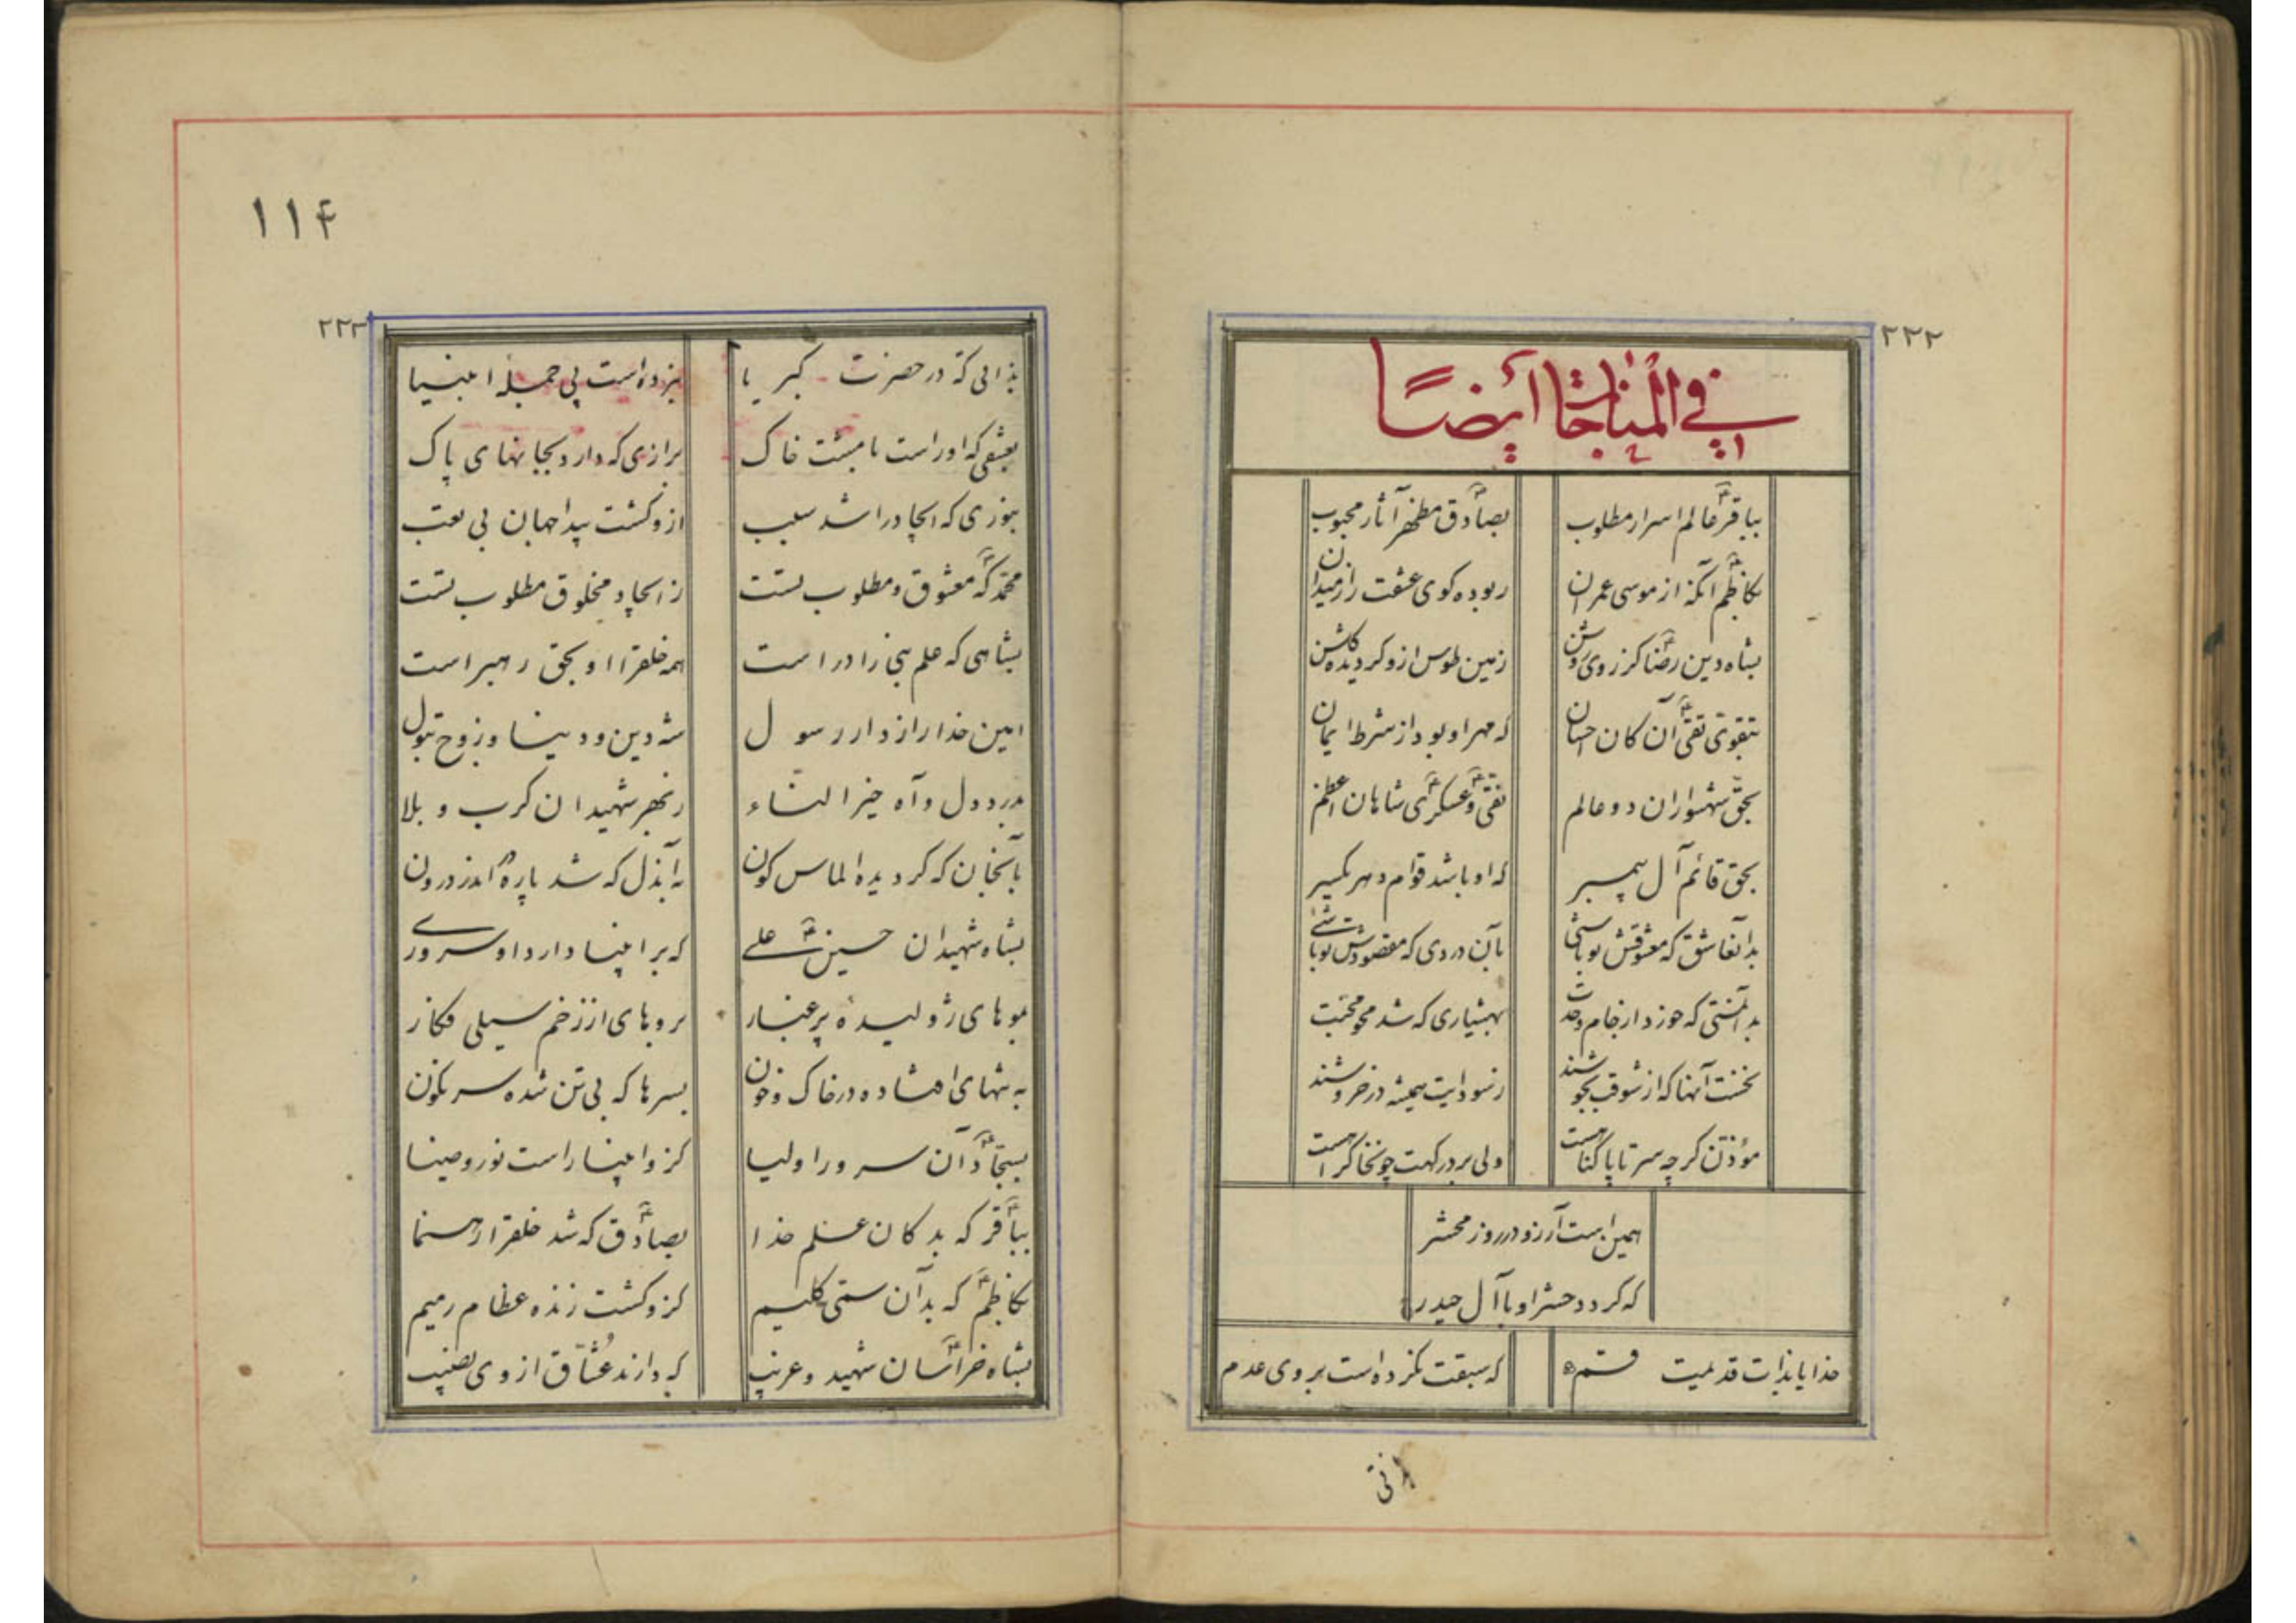 ۲۲۲
في المناجات أيضاً
بباقر عالم اسرار مطلوب بصادق مظهر آثار محبوب
بکاظم آنکه از موسی عمران ربوده کوی عشقت را ز میدان
بشاه دین رضا کز روی روشن زمین طوس ازو کردیده کلشن
بتقوی تقی آن کان احسان که مهر او بود از شرط ایمان
بحق شهسواران دو عالم نقی و عسکری شاهان اعظم
بحق قائم آل پیمبر که او باشد قوام دهر یکسر
بدانعاشق که معشوقش تو باشی بآن دردی که مقصودش تو باشی
بدآنمستی که خورد از جام وحدت بهشیاری که شد محو محبت
بخشت آنها که از شوقت بجوشند ز سودایت همیشه در خروشند
مؤذن کرچه سر تا پا کناهست ولی بر درکهت چون خاک راهست
همین است آرزو در روز محشر
که کردد حشر او با آل حیدر
خدایا بذات قدیمیت قسم که سبقت نکرده است بر وی عدم
۱۱۴
۲۲۳
بذاتی که در حضرت کبریا نبرده است پی جمله انبیا
بعشقی که او راست با مشت خاک برازی که دارد بجانهای پاک
بنوری که ایجاد را شد سبب ازو کشت پیدا جهان بی تعب
محمد که معشوق و مطلوب تست ز ایجاد مخلوق مطلوب تست
بشاهی که علم نبی را در است همه خلقرا او بحق رهبر است
امین خدا رازدار رسول شه دین و دنیا و زوج بتول
بدرد دل و آه خیر النساء ز بهر شهیدان کرب و بلا
بآنجان که کردیده الماس کون بآندل که شد پاره اندر درون
بشاه شهیدان حسین علی که بر انبیا دارد او سروری
بموهای ژولیده پر غبار بروهای از زخم سیلی فکار
به تنهای افتاده در خاک و خون بسرها که بی تن شده سرنکون
بسجاد آن سرور اولیا کزو انبیا راست نور و ضیا
بباقر که بد کان علم خدا بصادق که شد خلقرا رهنما
بکاظم که بد آن سمی کلیم کزو کشت زنده عظام رمیم
بشاه خراسان شهید و غریب که دارند عشاق از وی نصیب